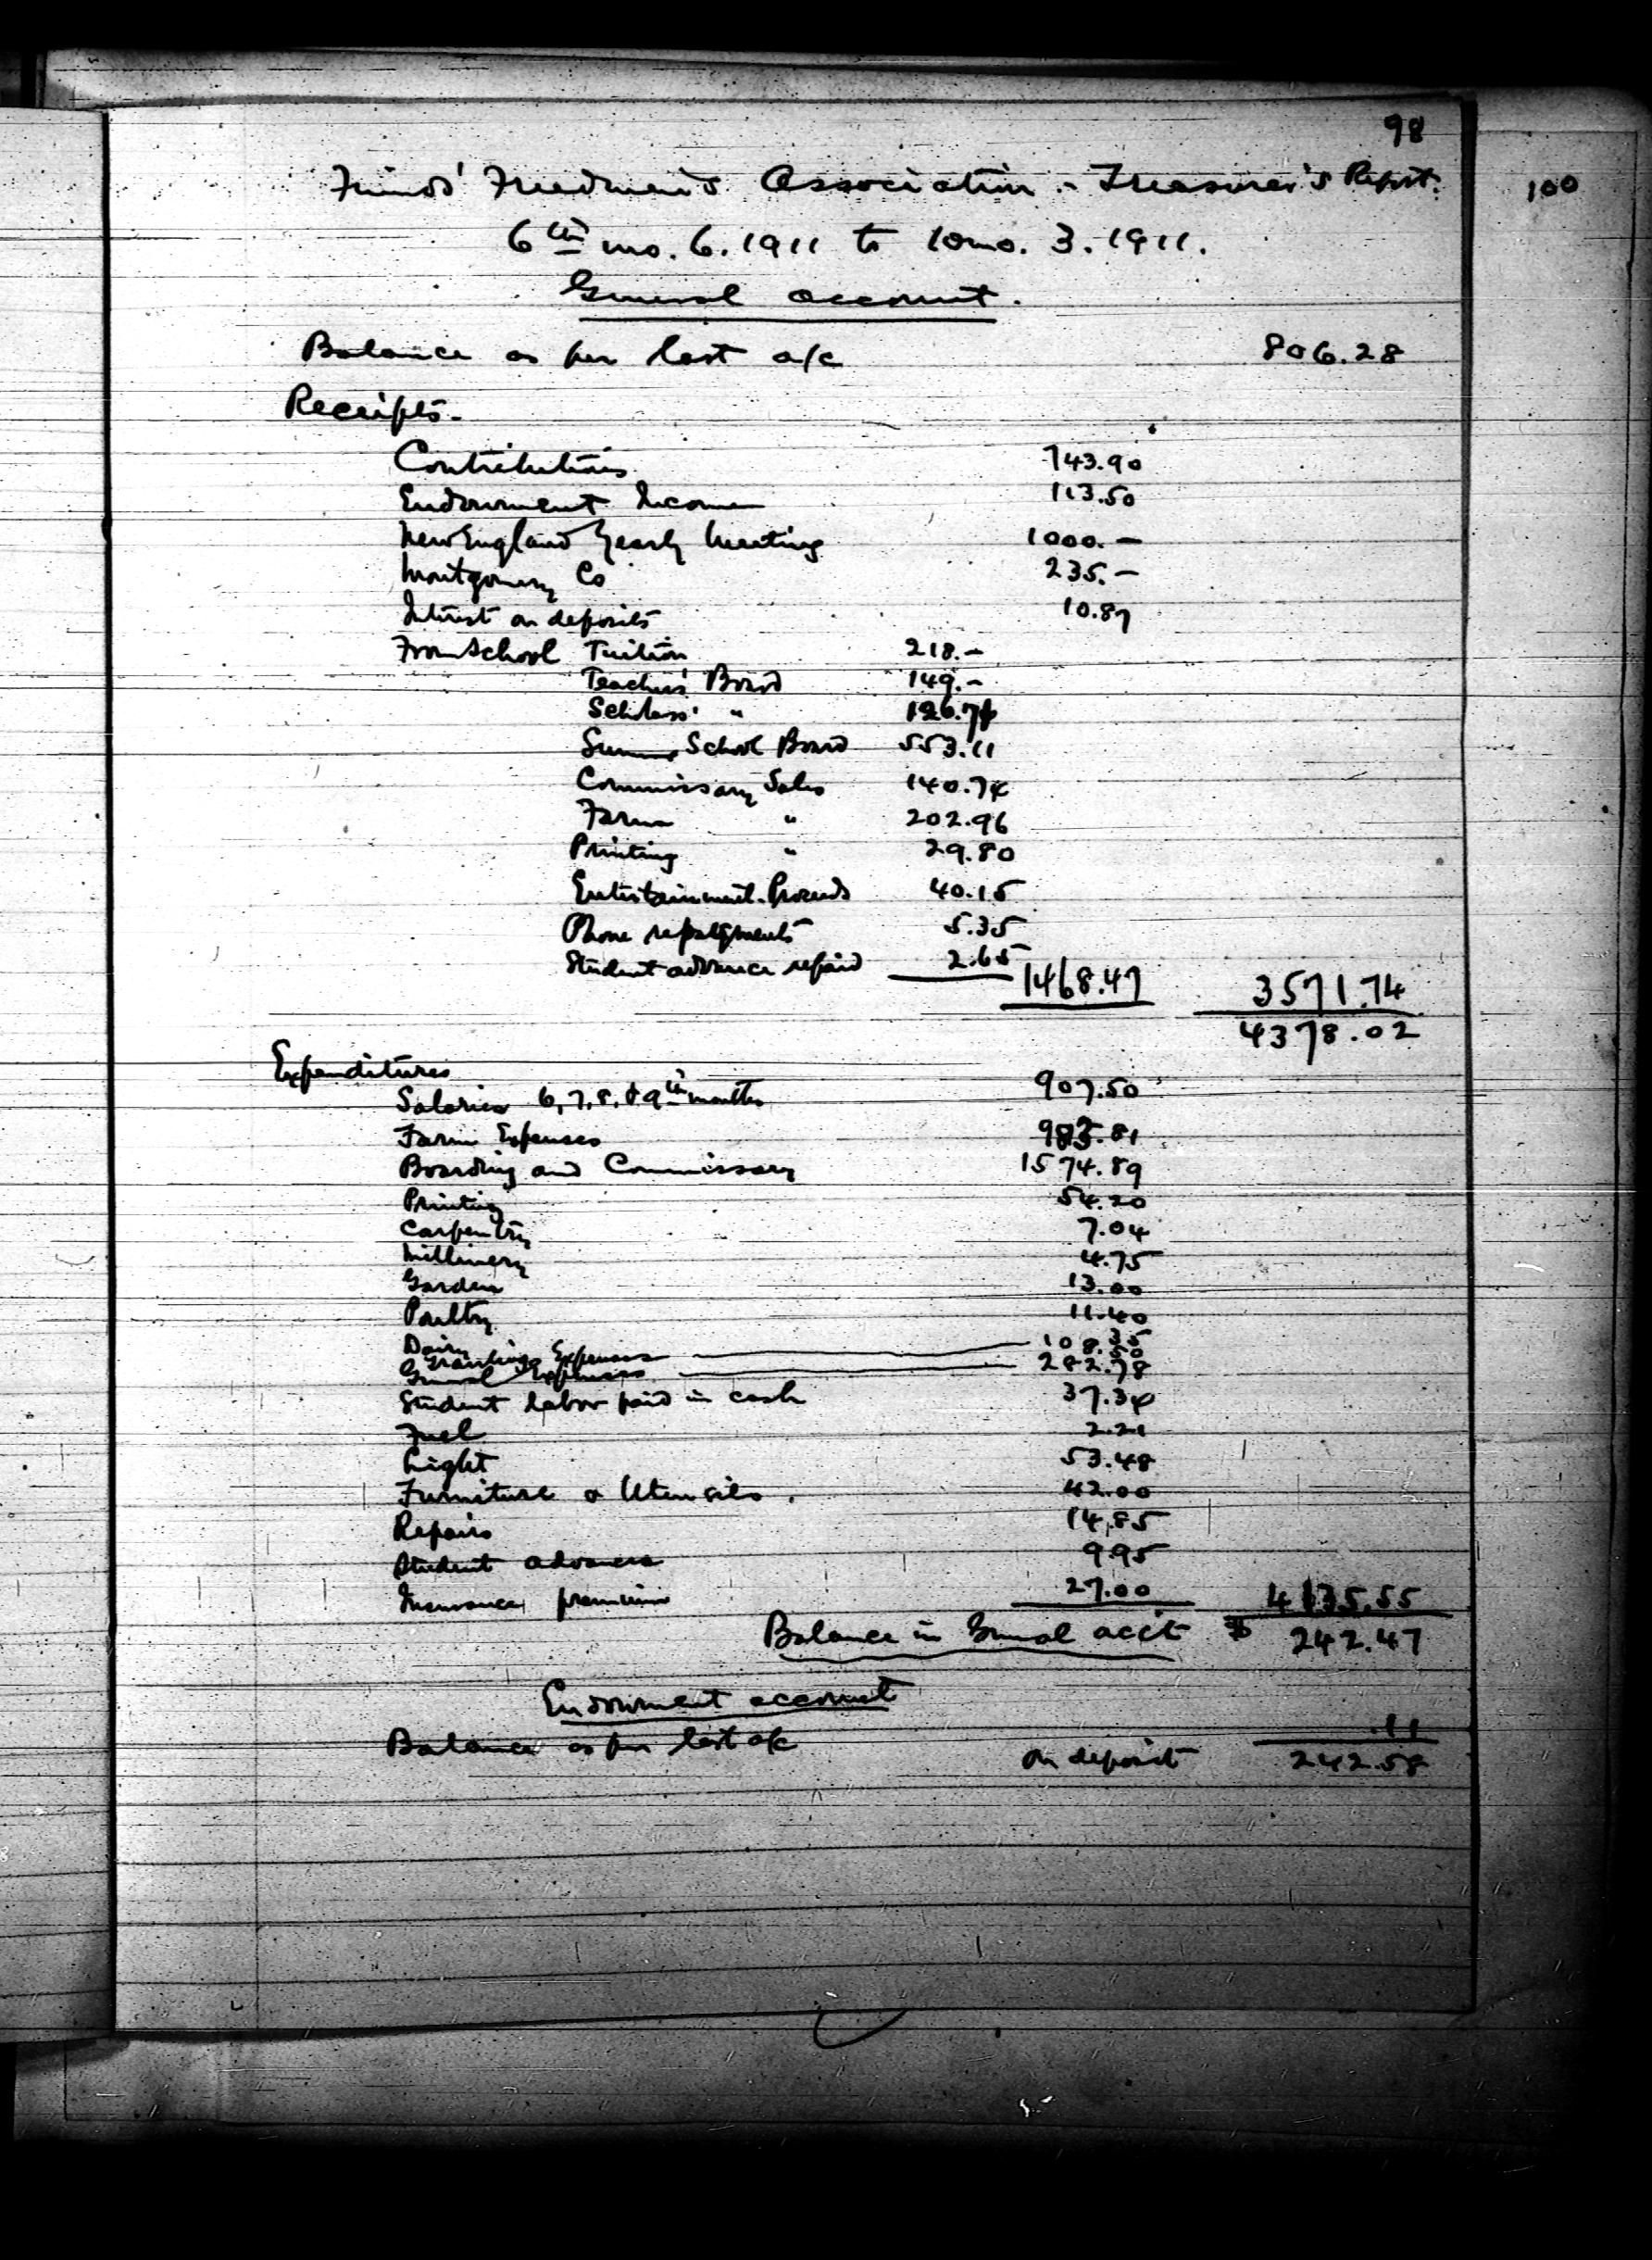 98
100
Friends' Freedmen's Association - Treasurer's Report.
6th mo. 6. 1911 to 10mo. 3. 1911.
General account.
Balance as per last a/c 806.28
Receipts.
Contributions 743.90
Endowment Income 113.50
New England Yearly Meeting 1000.—
Montgomery Co 235.—
Interest on deposits 10.87
From School Tuition 218.—
Teachers' Board 149.—
Scholars' " 126.71
Summer School Board 553.11
Commissary Sales 140.74
Farm " 202.96
Printing " 29.80
Entertainment Proceeds 40.15
Phone repayments 5.35
Student advance repaid 2.65
1468.47 3571.74
4378.02
Expenditures
Salaries 6, 7, 8, & 9th months 907.50
Farm Expenses 983.81
Boarding and Commissary 1574.89
Printing 54.20
Carpentry 7.04
Millinery 4.75
Garden 13.00
Poultry 11.40
Dairy
Traveling Expenses 108.50
General Expenses 282.78
Student labor paid in cash 37.34
Fuel 2.21
Light 53.48
Furniture & Utensils. 42.00
Repairs 14.85
Student advances 9.95
Insurance premium 27.00 4135.55
Balance in General acct $ 242.47
Endowment account
Balance as per last a/c .11
on deposit 242.58